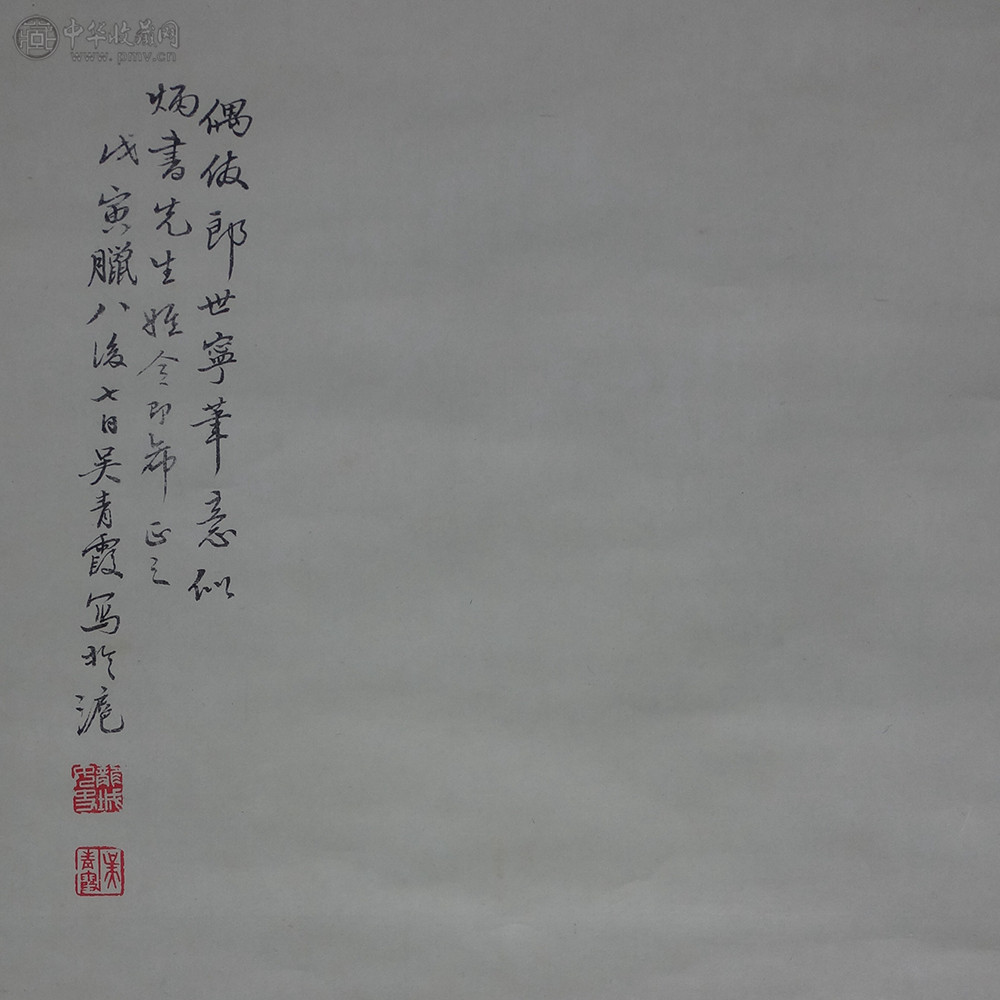 中华收藏网
www.pmv.cn
偶仿郎世寧筆意似
炳書先生雅令即希正之
戊寅臘八後七日吳青霞写於滬
龍城
吳青霞